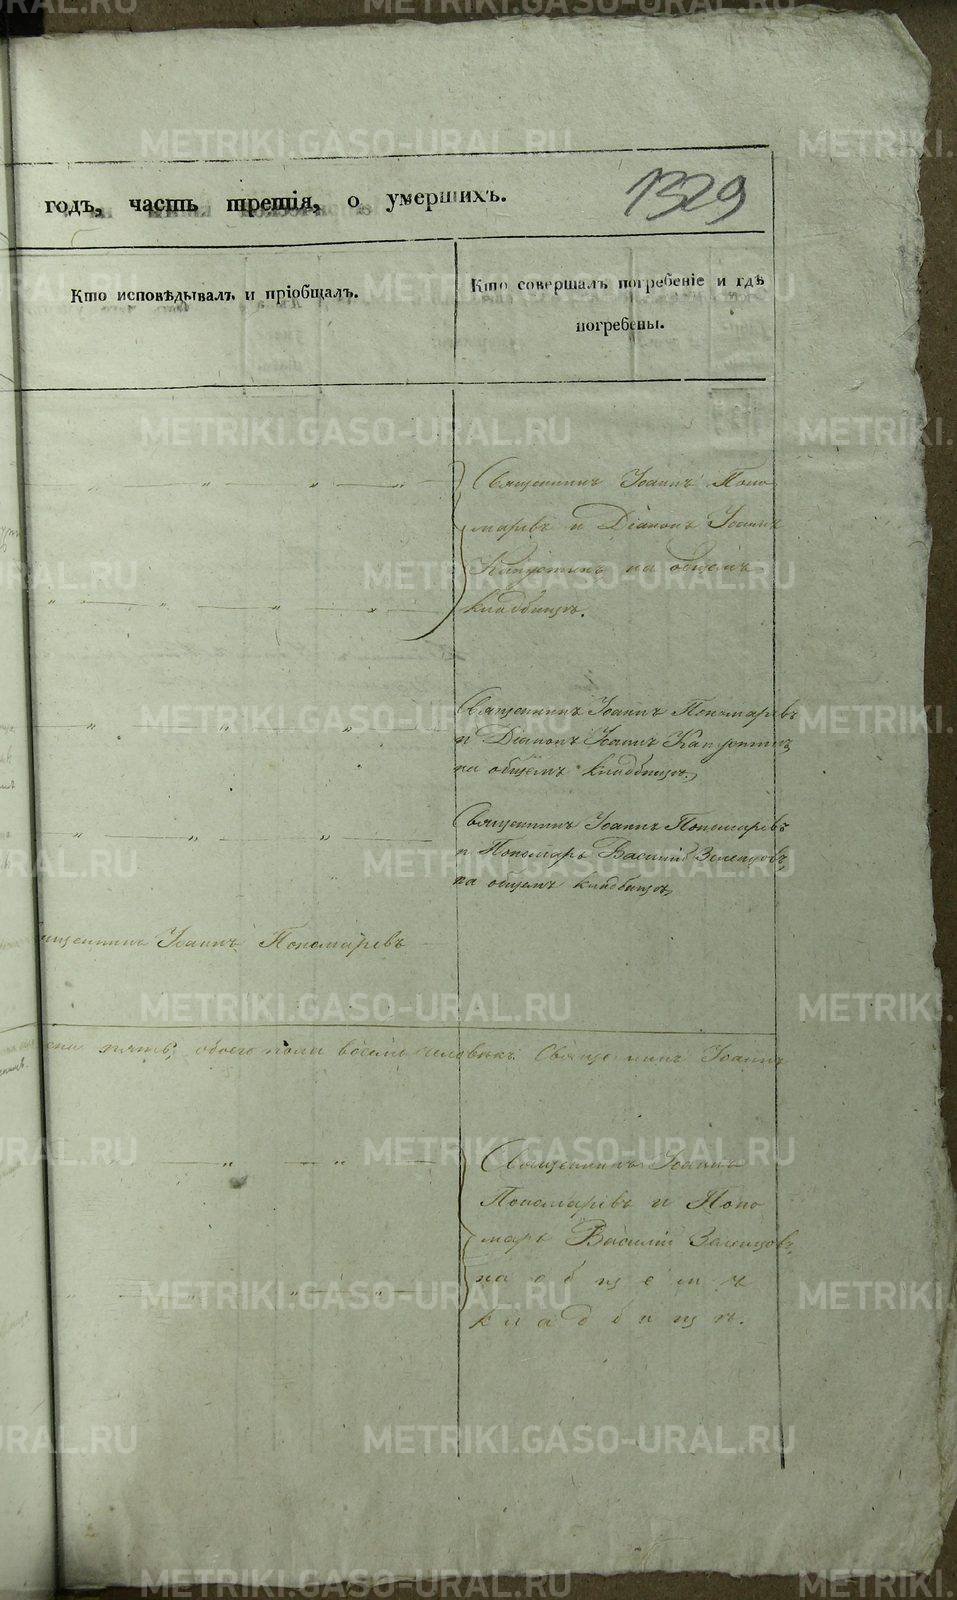 годъ, часть третія, о умершихъ.
1329
Кто исповѣдывалъ и пріобщалъ.
Кто совершалъ погребеніе и гдѣ
погребены.
Священникъ Іоаннъ Поно
маревъ и Діаконъ Іоаннъ
Капустинъ на общемъ
кладбищѣ.
Священникъ Іоаннъ Пономаревъ
и Діаконъ Іоаннъ Капустинъ
на общемъ кладбищѣ.
Священникъ Іоаннъ Пономаревъ
и Пономарь Василій Зеленцовъ,
на общемъ кладбищѣ,
щенникъ Іоаннъ Пономаревъ
пять, обоего пола восемь человѣкъ. Священникъ Іоаннъ
Священникъ Іоаннъ
Пономаревъ и Поно
марь Василій Зеленцовъ,
на общемъ
кладбищѣ.
METRIKI.GASO-URAL.RU